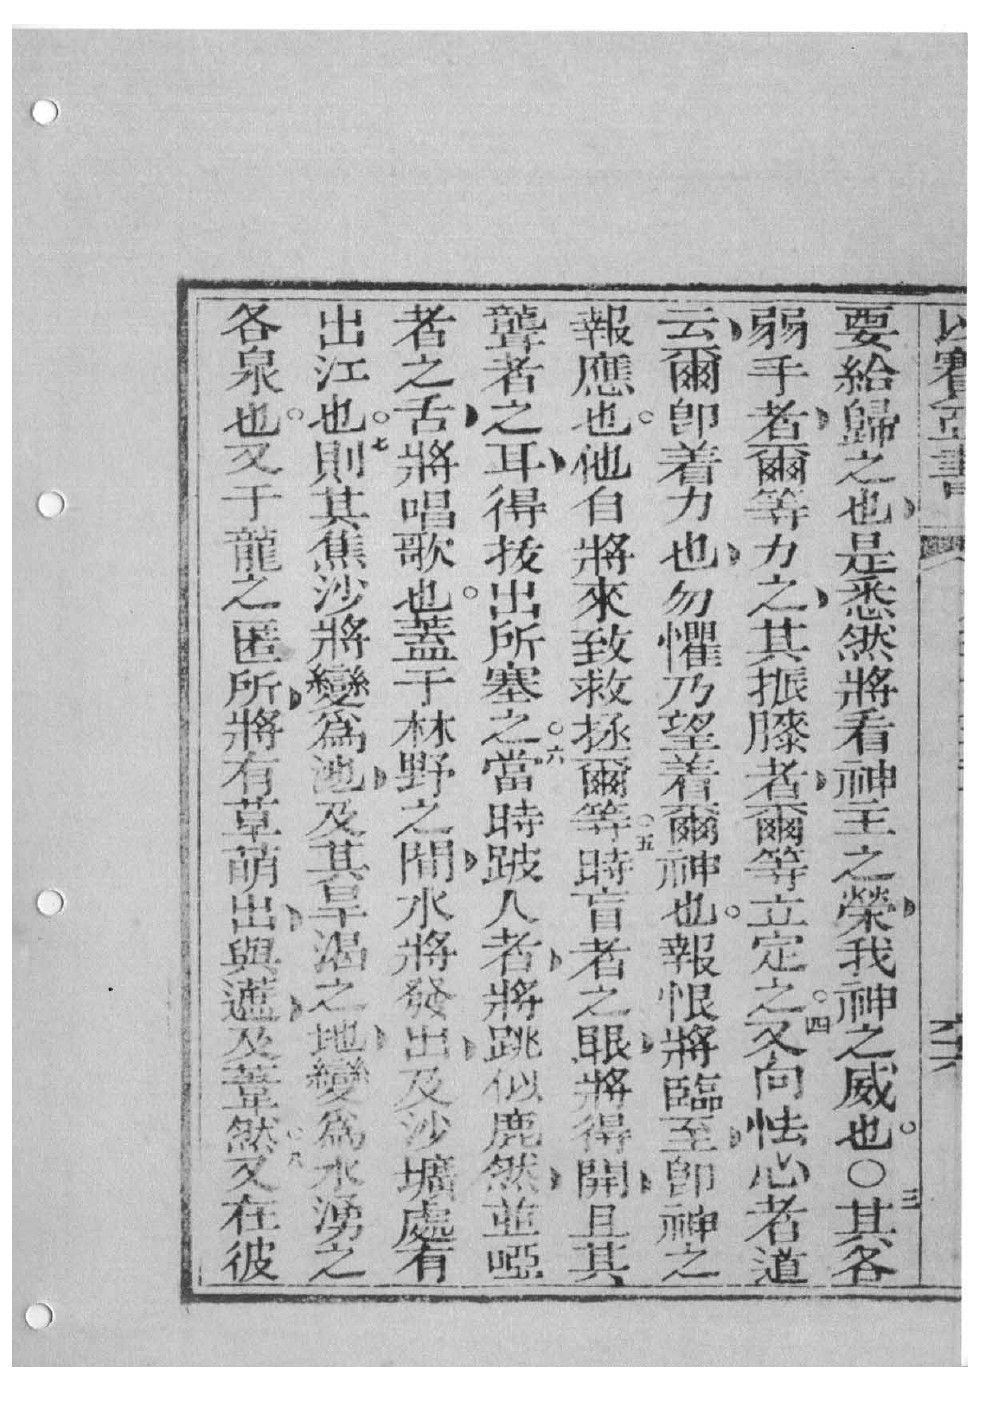 以賽亞書
要給歸之也是悉然將看神主之榮我神之威也○三其各
弱手者爾等力之其振膝者爾等立定之四又向怯心者道
云爾卽着力也勿懼乃望着爾神也報恨將臨至卽神之
報應也他自將來致救拯爾等五時盲者之眼將得開且其
聾者之耳得拔出所塞之六當時跛人者將跳似鹿然並啞
者之舌將唱歌也蓋于林野之間水將發出及沙壙處有
出江也七則其焦沙將變爲池及其旱渴之地變爲水湧之
各泉也又于龍之匿所將有草萌出與蘧及葦然八又在彼